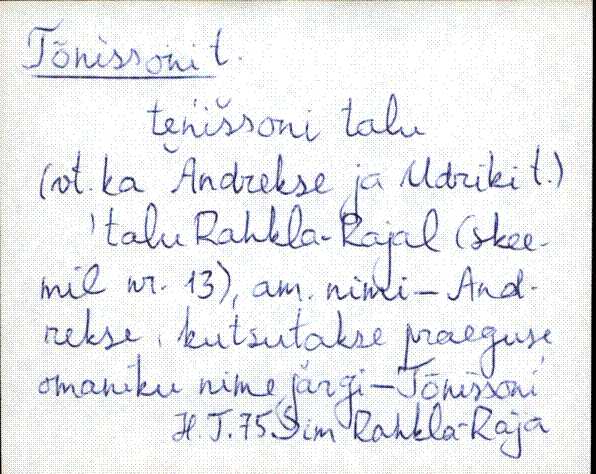 Tõnissoni t.
teńiššoni talu
(vt. ka Andrekse ja Udriki t.)
'talu Rahkla-Rajal (skee-
mil nr. 13), am. nimi - And-
rekse, kutsutakse praeguse
omaniku nime järgi - Tõnissoni
H. T. 75 Sim Rahkla-Raja